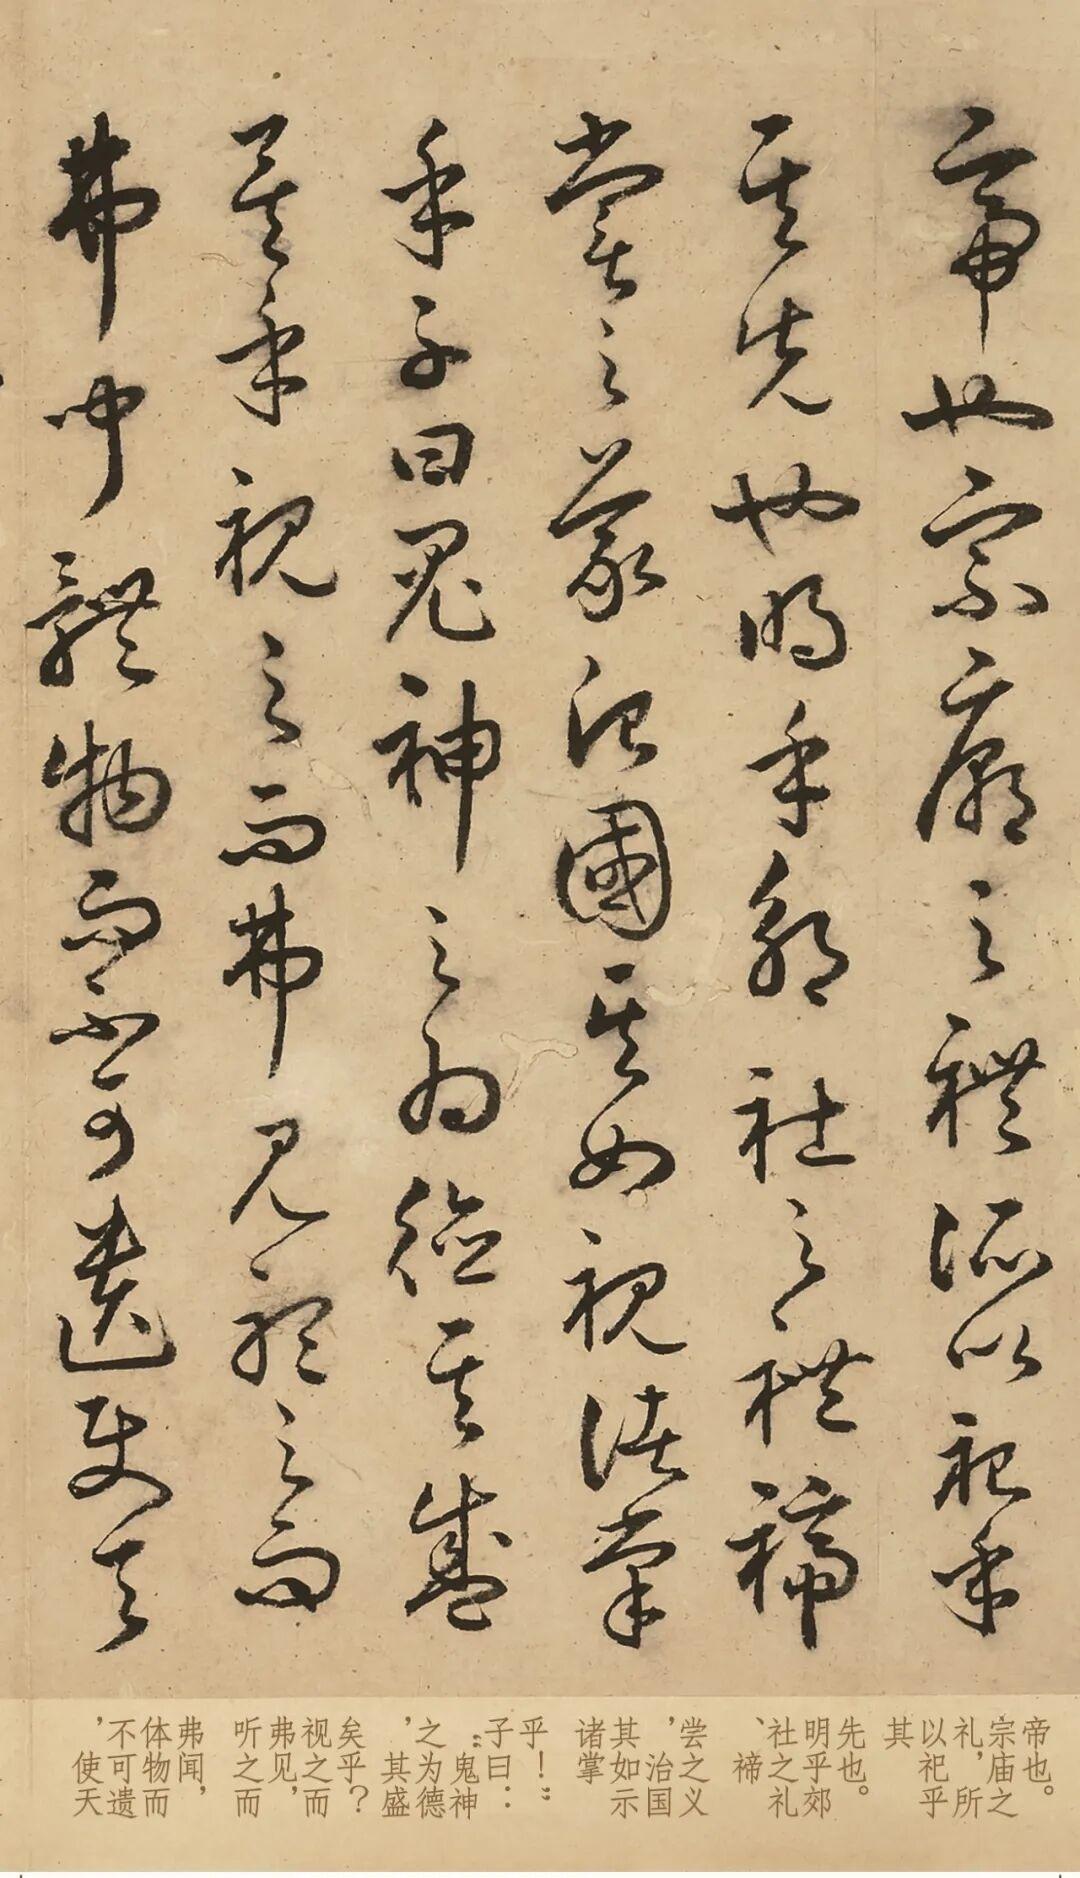 帝也宗廟之禮所以祀乎
其先也明乎郊社之禮禘
嘗之義治國其如視諸掌
乎子曰鬼神之為德其盛
矣乎視之而弗見聽之而
弗聞體物而不可遺使天
帝也。
宗庙之
礼，所
以祀乎
其
先也。
明乎郊
社之礼
、禘
尝之义
，治国
其如示
诸掌
乎！”
子曰：
“鬼神
之为德
，其盛
矣乎？
视之而
弗见，
听之而
弗闻，
体物而
不可遗
，使天